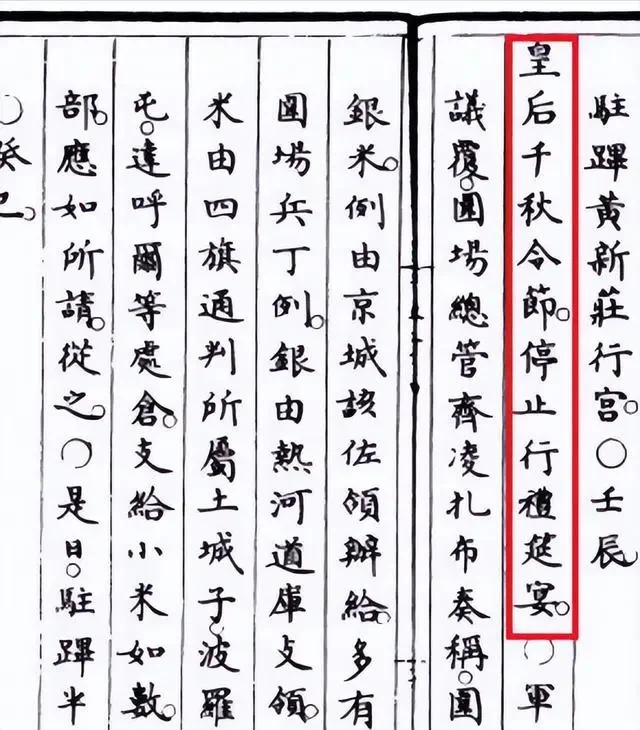 駐蹕黃新莊行宮。〇壬辰
皇后千秋令節。停止行禮筵宴。〇軍
議覆。圍場總管齊凌扎布奏稱。圍
銀米。例由京城該佐領辦給。多有
圍場兵丁例。銀由熱河道庫支領。
米由四旗通判所屬土城子。波羅
屯。達呼爾等處倉。支給小米如數。
部。應如所請。從之。〇是日。駐蹕半
〇癸巳。